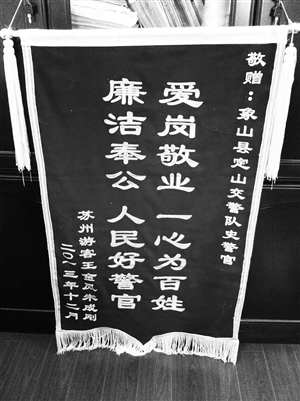 敬赠：象山县定山交警队史警官
爱岗敬业 一心为百姓
廉洁奉公 人民好警官
苏州游客王金凤朱成刚
二〇一三年十二月